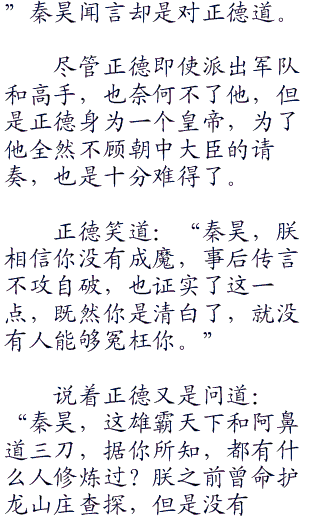 ”秦昊闻言却是对正德道。
尽管正德即使派出军队
和高手，也奈何不了他，但
是正德身为一个皇帝，为了
他全然不顾朝中大臣的请
奏，也是十分难得了。
正德笑道：“秦昊，朕
相信你没有成魔，事后传言
不攻自破，也证实了这一
点，既然你是清白了，就没
有人能够冤枉你。”
说着正德又是问道：
“秦昊，这雄霸天下和阿鼻
道三刀，据你所知，都有什
么人修炼过？朕之前曾命护
龙山庄查探，但是没有